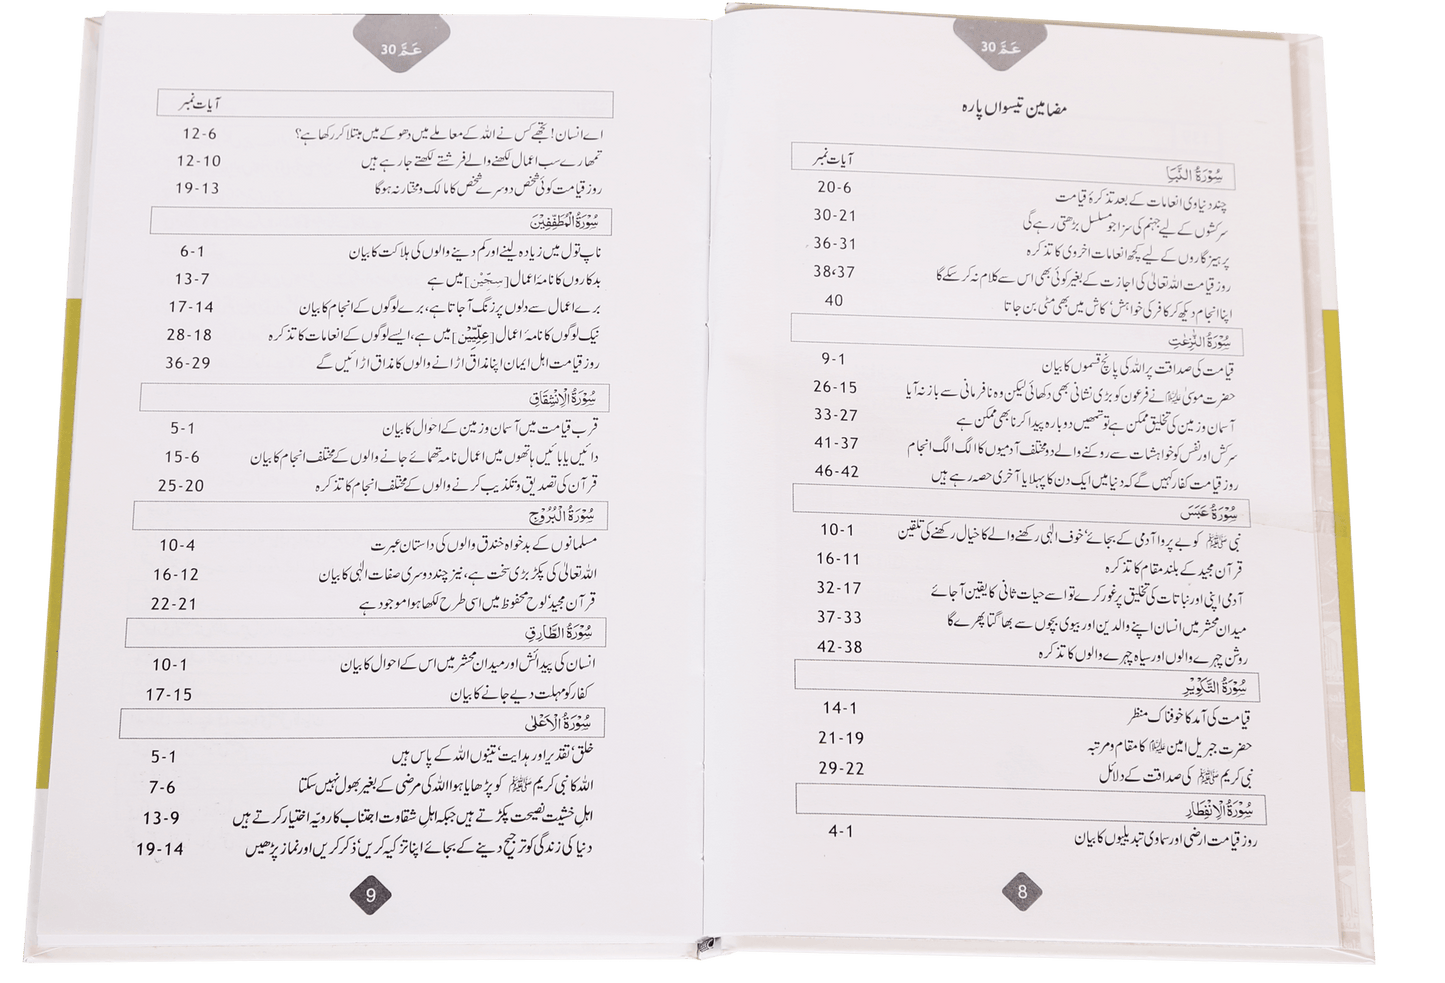 عَمَّ 30
مضامین تیسواں پارہ
آیات نمبر
سُوْرَةُ النَّبَاِ
چند دنیاوی انعامات کے بعد تذکرۂ قیامت 6-20
سرکشوں کے لیے جہنم کی سزا جو مسلسل بڑھتی رہے گی 21-30
پرہیزگاروں کے لیے کچھ انعامات اخروی کا تذکرہ 31-36
روز قیامت اللہ تعالیٰ کی اجازت کے بغیر کوئی بھی اس سے کلام نہ کر سکے گا 37،38
اپنا انجام دیکھ کر کافر کی خواہش‘ کاش میں بھی مٹی بن جاتا 40
سُوْرَةُ النّٰزِعٰتِ
قیامت کی صداقت پر اللہ کی پانچ قسموں کا بیان 1-9
حضرت موسیٰ علیہ السلام نے فرعون کو بڑی نشانی بھی دکھائی لیکن وہ نافرمانی سے باز نہ آیا 15-26
آسمان و زمین کی تخلیق ممکن ہے تو تمہیں دوبارہ پیدا کرنا بھی ممکن ہے 27-33
سرکش اور نفس کو خواہشات سے روکنے والے دو مختلف آدمیوں کا الگ الگ انجام 37-41
روز قیامت کفار کہیں گے کہ دنیا میں ایک دن کا پہلا یا آخری حصہ رہے ہیں 42-46
سُوْرَةُ عَبَسَ
نبی ﷺ کو بے پروا آدمی کے بجائے‘ خوف الٰہی رکھنے والے کا خیال رکھنے کی تلقین 1-10
قرآن مجید کے بلند مقام کا تذکرہ 11-16
آدمی اپنی اور نباتات کی تخلیق پر غور کرے تو اسے حیات ثانی کا یقین آ جائے 17-32
میدان محشر میں انسان اپنے والدین اور بیوی بچوں سے بھاگتا پھرے گا 33-37
روشن چہرے والوں اور سیاہ چہرے والوں کا تذکرہ 38-42
سُوْرَةُ التَّكْوِيْرِ
قیامت کی آمد کا خوفناک منظر 1-14
حضرت جبریل امین علیہ السلام کا مقام و مرتبہ 19-21
نبی کریم ﷺ کی صداقت کے دلائل 22-29
سُوْرَةُ الْاِنْفِطَارِ
روز قیامت ارضی اور سماوی تبدیلیوں کا بیان 1-4
8
عَمَّ 30
آیات نمبر
اے انسان! تجھے کس نے اللہ کے معاملے میں دھوکے میں مبتلا کر رکھا ہے؟ 6-12
تمہارے سب اعمال لکھنے والے فرشتے لکھتے جا رہے ہیں 10-12
روز قیامت کوئی شخص دوسرے شخص کا مالک و مختار نہ ہو گا 13-19
سُوْرَةُ الْمُطَفِّفِيْنَ
ناپ تول میں زیادہ لینے اور کم دینے والوں کی ہلاکت کا بیان 1-6
بدکاروں کا نامۂ اعمال [سِجِّيْن] میں ہے 7-13
برے اعمال سے دلوں پر زنگ آ جاتا ہے، برے لوگوں کے انجام کا بیان 14-17
نیک لوگوں کا نامۂ اعمال [عِلِّيِّيْنَ] میں ہے، ایسے لوگوں کے انعامات کا تذکرہ 18-28
روز قیامت اہل ایمان اپنا مذاق اڑانے والوں کا مذاق اڑائیں گے 29-36
سُوْرَةُ الْاِنْشِقَاقِ
قرب قیامت میں آسمان و زمین کے احوال کا بیان 1-5
دائیں یا بائیں ہاتھوں میں اعمال نامہ تھمائے جانے والوں کے مختلف انجام کا بیان 6-15
قرآن کی تصدیق و تکذیب کرنے والوں کے مختلف انجام کا تذکرہ 20-25
سُوْرَةُ الْبُرُوْجِ
مسلمانوں کے بدخواہ خندق والوں کی داستان عبرت 4-10
اللہ تعالیٰ کی پکڑ بڑی سخت ہے، نیز چند دوسری صفات الٰہی کا بیان 12-16
قرآن مجید‘ لوح محفوظ میں اسی طرح لکھا ہوا موجود ہے 21-22
سُوْرَةُ الطَّارِقِ
انسان کی پیدائش اور میدان محشر میں اس کے احوال کا بیان 1-10
کفار کو مہلت دیے جانے کا بیان 15-17
سُوْرَةُ الْاَعْلٰى
خلق‘ تقدیر اور ہدایت‘ تینوں اللہ کے پاس ہیں 1-5
اللہ کا نبی کریم ﷺ کو پڑھایا ہوا اللہ کی مرضی کے بغیر بھول نہیں سکتا 6-7
اہل خشیت نصیحت پکڑتے ہیں جبکہ اہل شقاوت اجتناب کا رویہ اختیار کرتے ہیں 9-13
دنیا کی زندگی کو ترجیح دینے کے بجائے اپنا تزکیہ کریں‘ ذکر کریں اور نماز پڑھیں 14-19
9